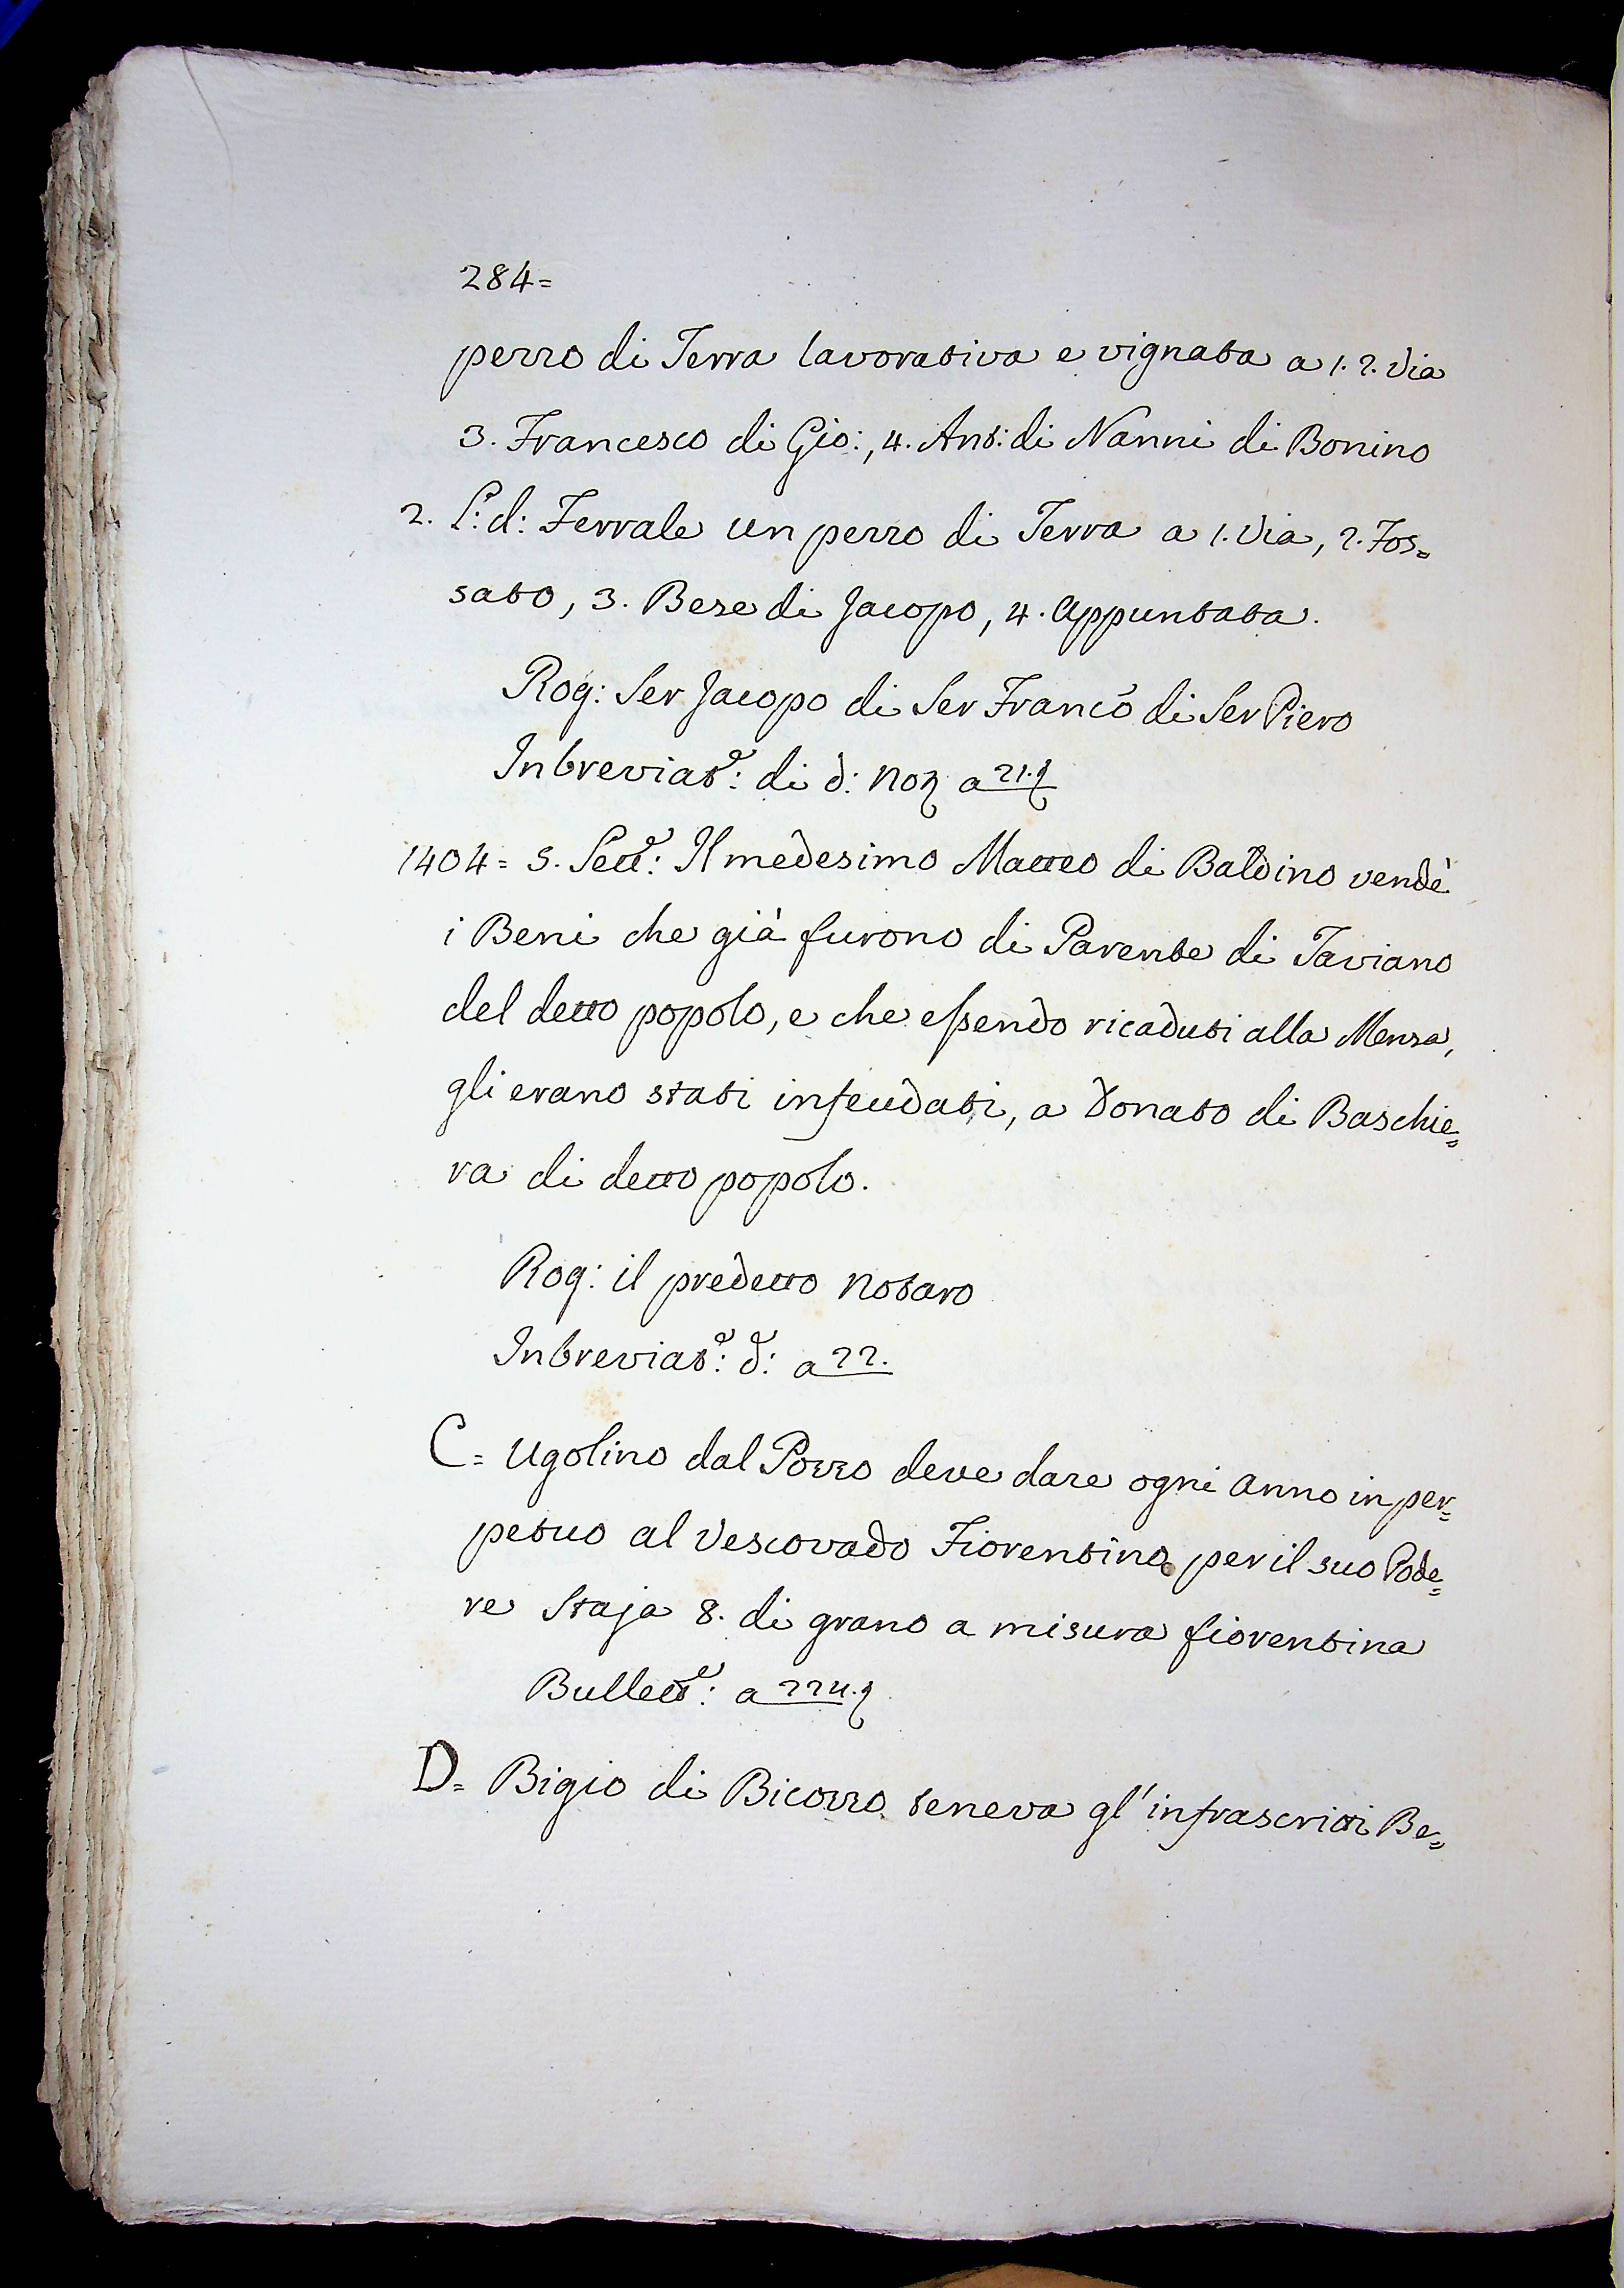 284=
pezzo di Terra lavorativa e vignata a 1. 2. Via
3. Francesco di Gio:, 4. Ant: di Nanni di Bonino
2. L: d: Ferrale un pezzo di Terra a 1. Via, 2. Fos=
sato, 3. Bese di Jacopo, 4. Appuntata.
Rog: Ser Jacopo di Ser Franco di Ser Piero
Inbreviat.e: di d: Not a 21.
1404= 5. Sett.e: Il medesimo Matteo di Baldino vendè
i Beni che già furono di Parente di Taviano
del detto popolo, e che essendo ricaduti alla Mensa,
gli erano stati infeudati, a Donato di Baschie=
ra di detto popolo.
Rog: il predetto Notaro
Inbreviat.e: d.e: a 22.
C= Ugolino dal Pozzo deve dare ogni Anno in per=
petuo al Vescovado Fiorentino per il suo Pode=
re Staja 8. di grano a misura fiorentina
Bullett.e: a 224.
D= Bigio di Bicozzo teneva gl'infrascritti Be=